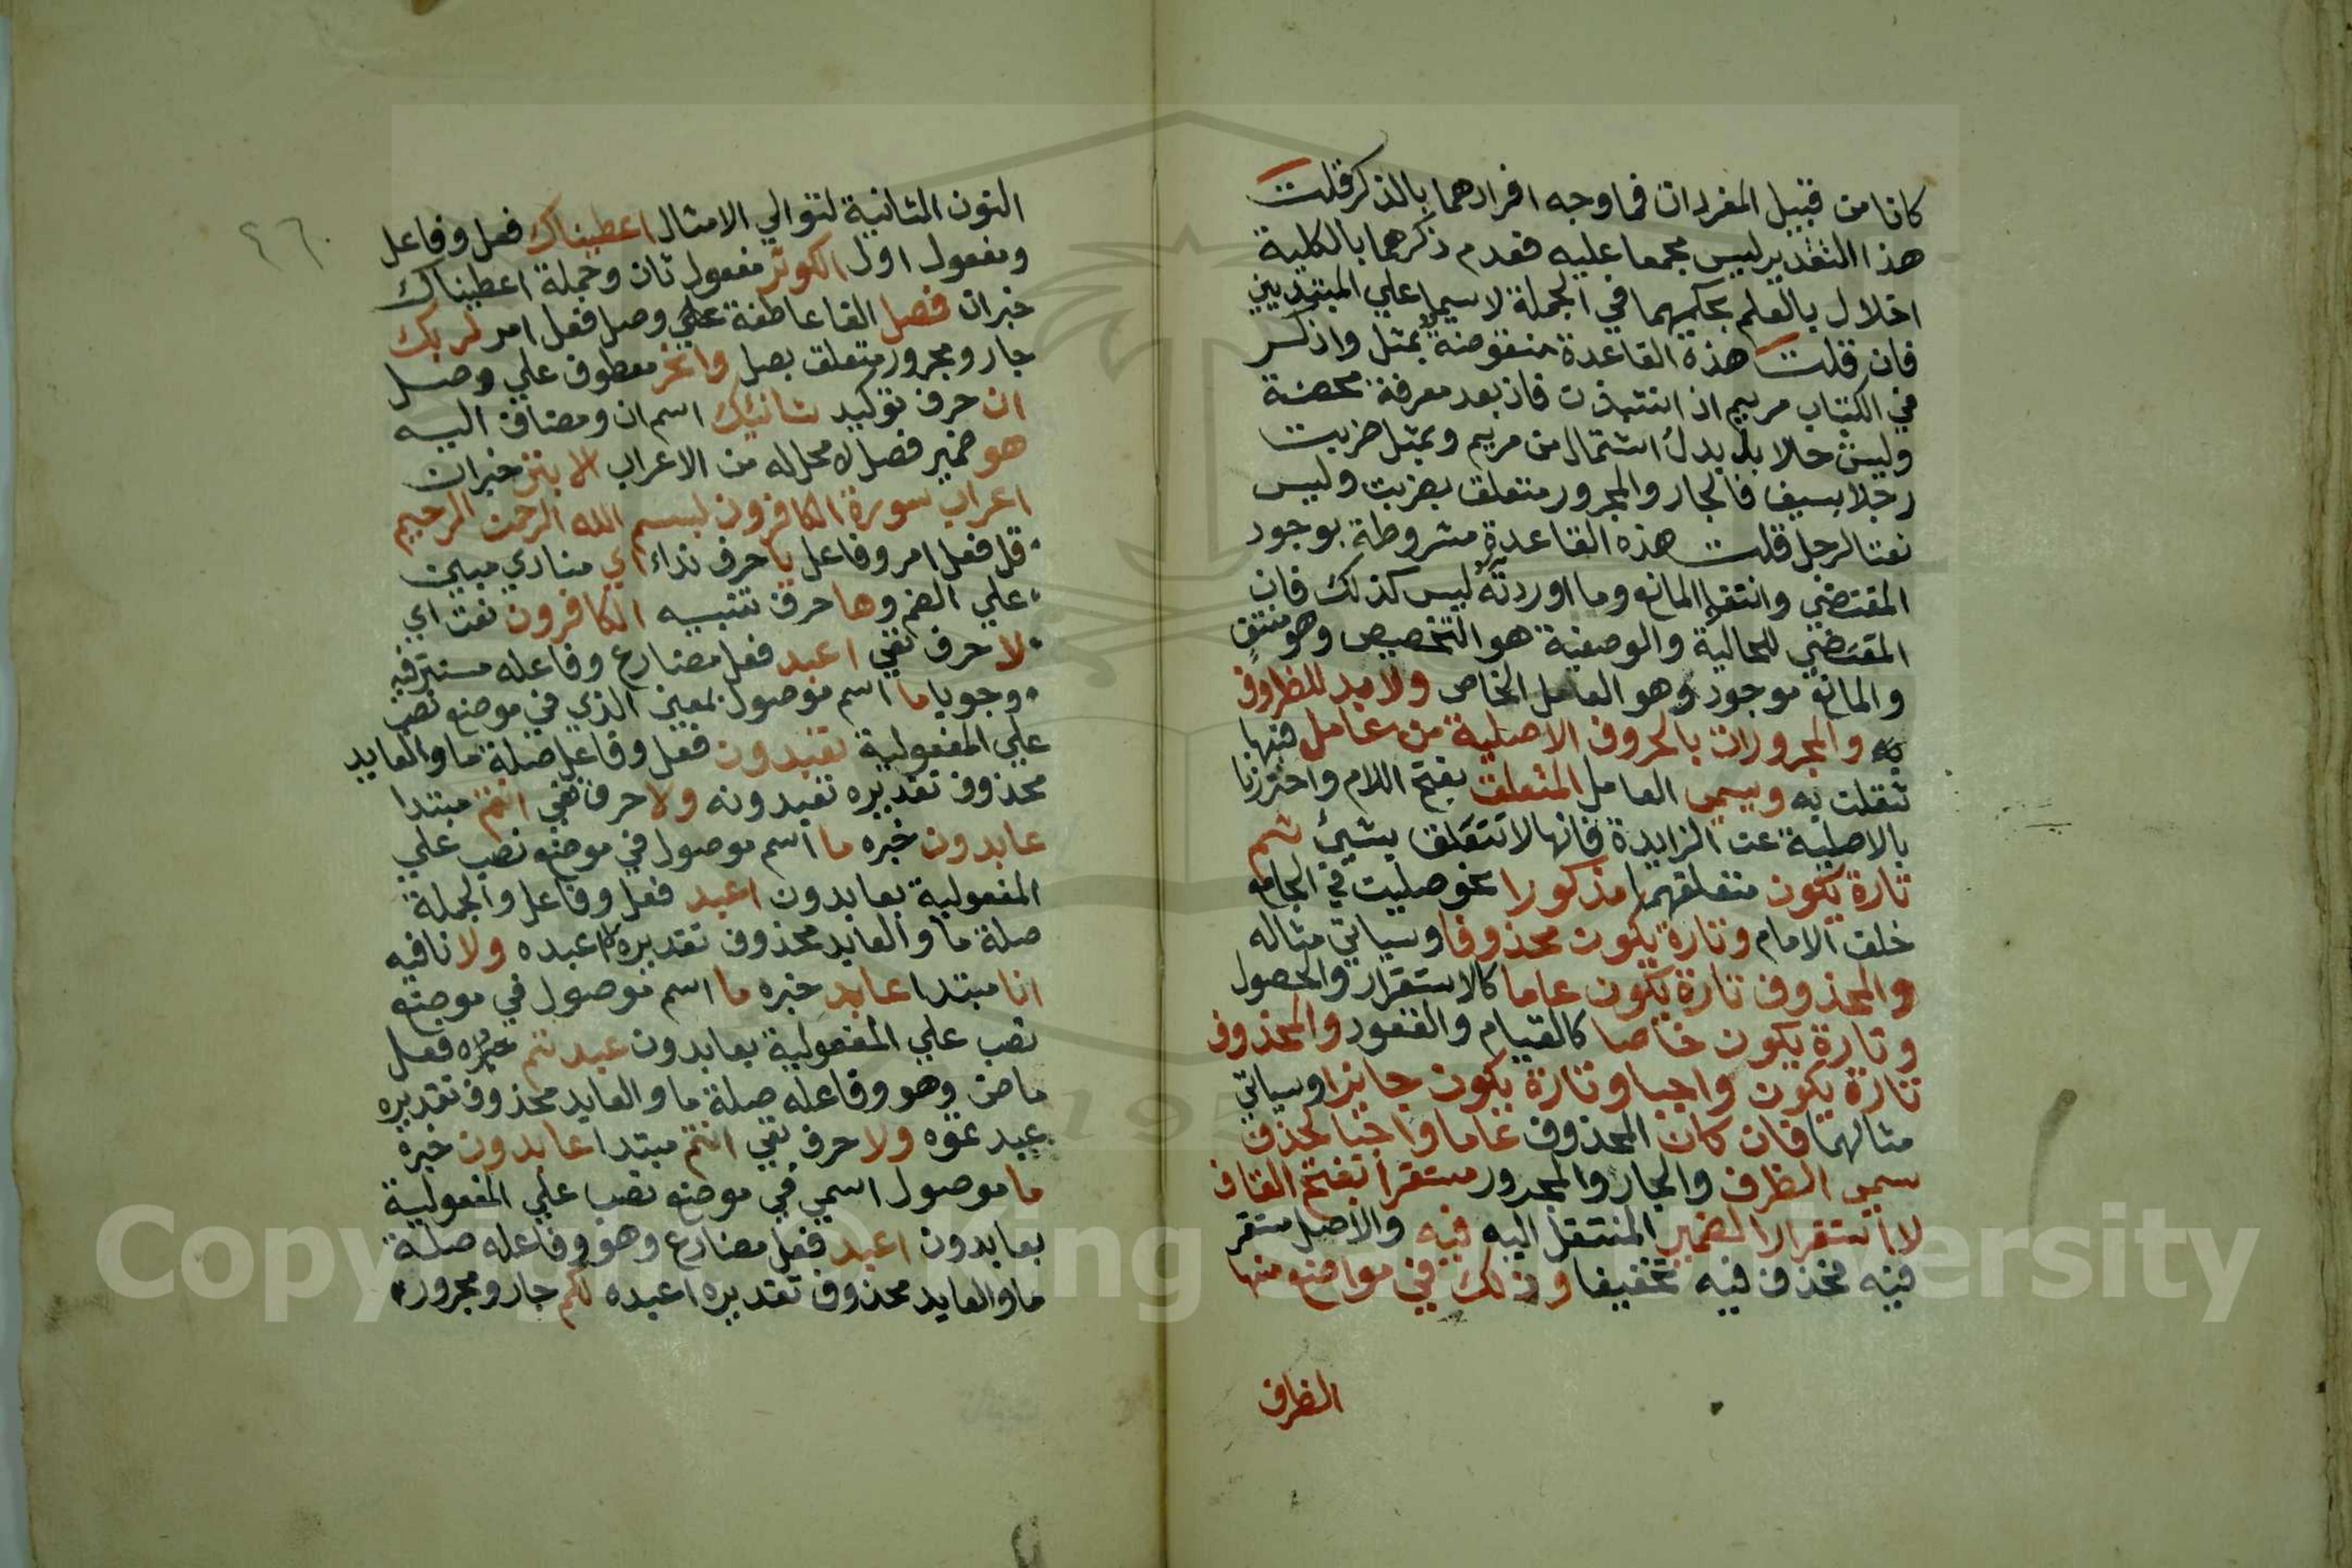 كانا من قبيل المفردات فما وجه افرادهما بالذكر قلت
هذا التقدير ليس مجمعا عليه فعدم ذكرهما بالكلية
اخلال بالعلم بحكمهما في الجملة لا سيما علي المبتديين
فان قلت هذه القاعدة منقوضة بمثل واذكر
في الكتاب مريم اذ انتبذت فاذ بعد معرفة محضة
وليس حالا بل بدل اشتمال من مريم وبمثل ضربت
رجلا بسيف فالجار والمجرور متعلق بضربت وليس
نعتا لرجل قلت هذه القاعدة مشروطة بوجود
المقتضي وانتفا المانع وما اوردته ليس كذلك فان
المقتضي للحالية والوصفية هو التخصيص وهو منتف
والمانع موجود وهو العامل الخاص ولا بد للظروف
والمجرورات بالحروف الاصلية من عامل فيها
به
تعلقت به ويسمي العامل المتعلق بفتح اللام واحترزنا
بالاصلية عن الزايدة فانها لا تتعلق بشيئ ثم
تارة يكون متعلقهما مذكورا نحو صليت في الجامع
خلف الامام وتارة يكون محذوفا وسياتي مثاله
والمحذوف تارة يكون عاما كالاستقرار والحصول
وتارة يكون خاصا كالقيام والقعود والمحذوف
تارة يكون واجبا وتارة يكون جايزا وسياتي
مثالهما فان كان المحذوف عاما واجبا لحذف
سمي الظرف والجار والمجرور مستقرا بفتح القاف
لاستقرار الضمير المنتقل اليه فيه والاصل مستقر
فيه فحذف فيه تخفيفا وذلك في مواضع منها
الظرف
النون الثانية لتوالي الامثال اعطيناك فعل وفاعل
ومفعول اول الكوثر مفعول ثان وجملة اعطيناك
خبران فصل الفا عاطفة علي وصل فعل امر لربك
جار ومجرور متعلق بصل وانحر معطوف علي وصل
ان حرف توكيد شانئك اسم ان ومضاف اليه
هو ضمير فصل لا محل له من الاعراب الابتر خبران
اعراب سورة الكافرون بسم الله الرحمن الرحيم
قل فعل امر وفاعل يا حرف نداء اي منادي مبين
علي الضم وها حرف تنبيه الكافرون نعت اي
لا حرف نفي اعبد فعل مضارع وفاعله مستتر فيه
وجوبا ما اسم موصول بمعيني الذي في موضع نصب
علي المفعولية تعبدون فعل وفاعل صلة ما والعايد
محذوف تقديره تعبدونه ولا حرف نفي انتم مبتدا
عابدون خبره ما اسم موصول في موضع نصب علي
المفعولية بعابدون اعبد فعل وفاعل والجملة
صلة ما والعايد محذوف تقديره اعبده ولا نافيه
انا مبتدا عابد خبره ما اسم موصول في موضع
نصب علي المفعولية بعابدون عبدتم فعل
ماض وهو وفاعله صلة ما والعايد محذوف تقديره
عبدتموه ولا حرف نفي انتم مبتدا عابدون خبره
ما موصول اسمي في موضع نصب علي المفعولية
بعابدون اعبد فعل مضارع وهو وفاعله صلة
ما والعايد محذوف تقديره اعبده لكم جار ومجرور
٤٦
Copyright © King Saud University
195